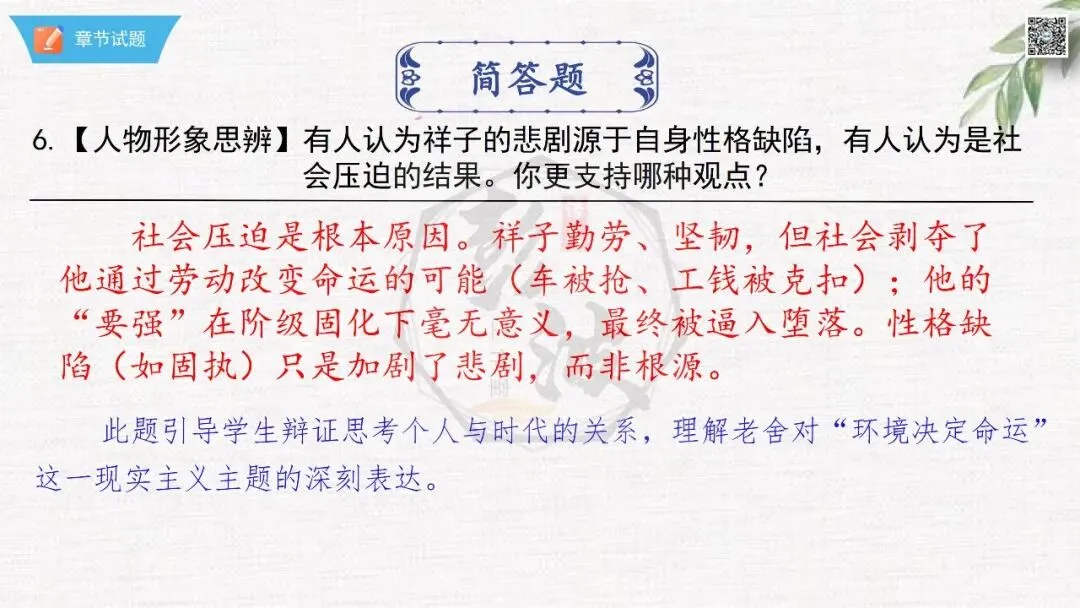 章节试题
简答题
6.【人物形象思辨】有人认为祥子的悲剧源于自身性格缺陷，有人认为是社
会压迫的结果。你更支持哪种观点？
社会压迫是根本原因。祥子勤劳、坚韧，但社会剥夺了
他通过劳动改变命运的可能（车被抢、工钱被克扣）；他的
“要强”在阶级固化下毫无意义，最终被逼入堕落。性格缺
陷（如固执）只是加剧了悲剧，而非根源。
此题引导学生辩证思考个人与时代的关系，理解老舍对“环境决定命运”
这一现实主义主题的深刻表达。